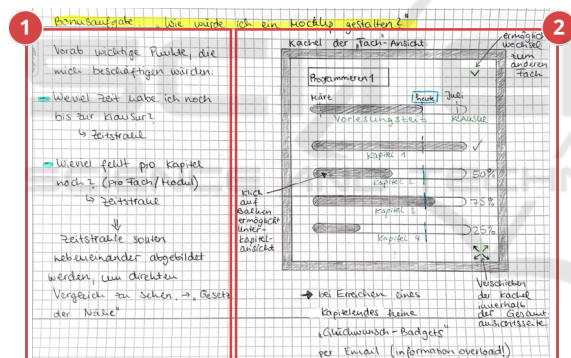 Bonusaufgabe „Wie würde ich ein MockUp gestalten?"
1
Vorab wichtige Punkte, die
mich beschäftigen würden:
- Wieviel Zeit habe ich noch
bis zur Klausur?
↳ Zeitstrahl
- Wieviel fehlt pro Kapitel
noch? (pro Fach/Modul)
↳ Zeitstrahl
⇓
Zeitstrahle sollen
nebeneinander abgebildet
werden, um direkten
Vergleich zu sehen. → „Gesetz
der Nähe"
2
Kachel der „Fach"-Ansicht
ermöglicht
wechsel
zum
anderen
Fach
Programmieren 1
März
heute
Juli
Vorlesungszeit
Klausur
Kapitel 1
Kapitel 2
50%
Kapitel 3
75%
Kapitel 4
25%
Klick
auf
Balken
ermöglicht
Unter-
kapitel-
ansicht
Verschieben
der Kachel
innerhalb
der Gesamt-
ansichtsseite
→ bei Erreichen eines
Kapitelendes kleine
„Glückwunsch-Badgets"
per Email (information overload!)